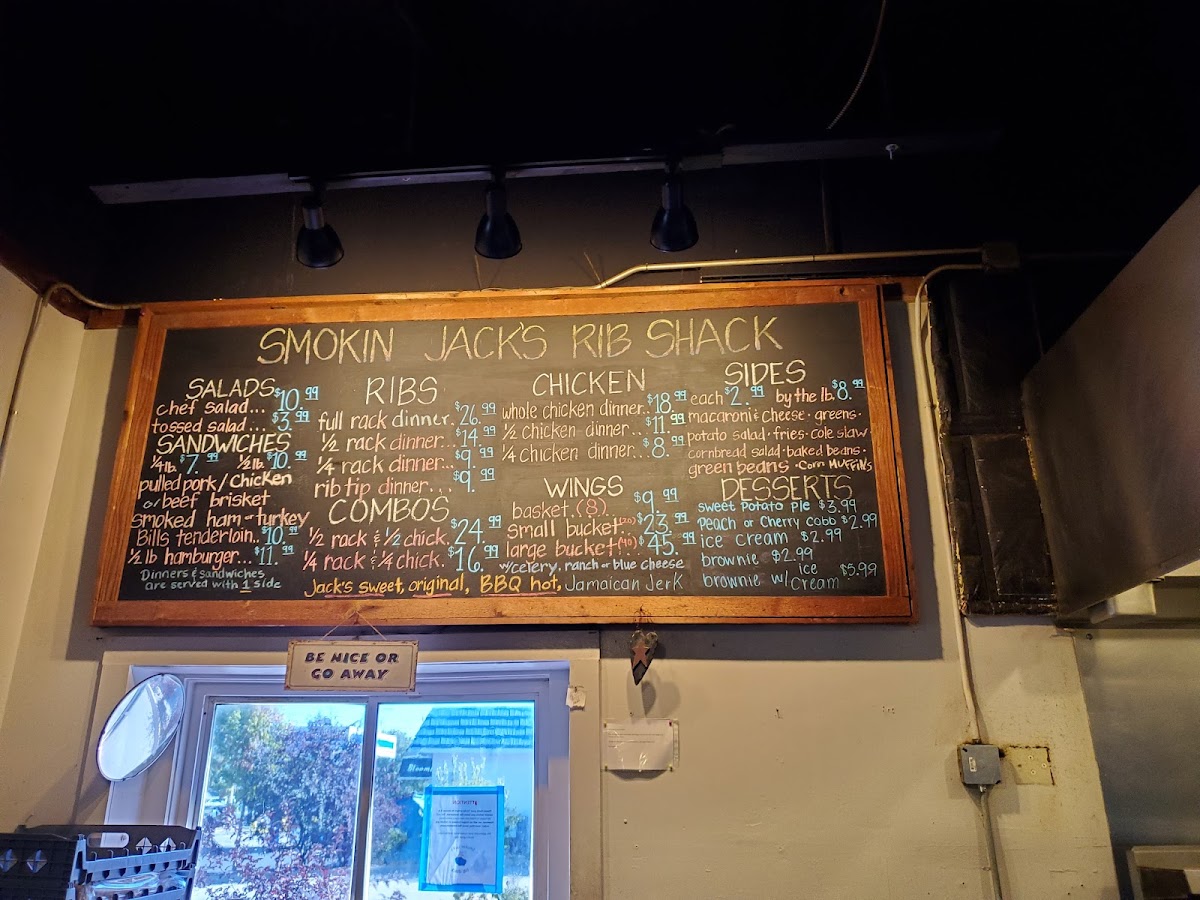 SMOKIN JACK'S RIB SHACK
SALADS
chef salad... $10.99
tossed salad... $3.99
SANDWICHES
1/4 lb. $7.99 1/2 lb. $10.99
pulled pork / chicken
or beef brisket
smoked ham - turkey
Bills tenderloin.. $10.99
1/2 lb hamburger... $11.99
Dinners & sandwiches
are served with 1 side
RIBS
full rack dinner. $26.99
1/2 rack dinner... $14.99
1/4 rack dinner... $9.99
rib tip dinner... $9.99
COMBOS
1/2 rack & 1/2 chick. $24.99
1/4 rack & 1/4 chick. $16.99
Jack's sweet, original, BBQ hot, Jamaican Jerk
CHICKEN
whole chicken dinner.. $18.99
1/2 chicken dinner... $11.99
1/4 chicken dinner... $8.99
WINGS
basket. (8) $9.99
small bucket. (20) $23.99
large bucket. (40) $45.99
w/celery, ranch or blue cheese
SIDES
each $2.99 by the lb. $8.99
macaroni & cheese · greens ·
potato salad · fries · cole slaw
cornbread salad · baked beans ·
green beans · Corn MUFFINS
DESSERTS
sweet potato pie $3.99
Peach or Cherry Cobb $2.99
ice cream $2.99
brownie $2.99
brownie w/ ice cream $5.99
BE NICE OR
GO AWAY